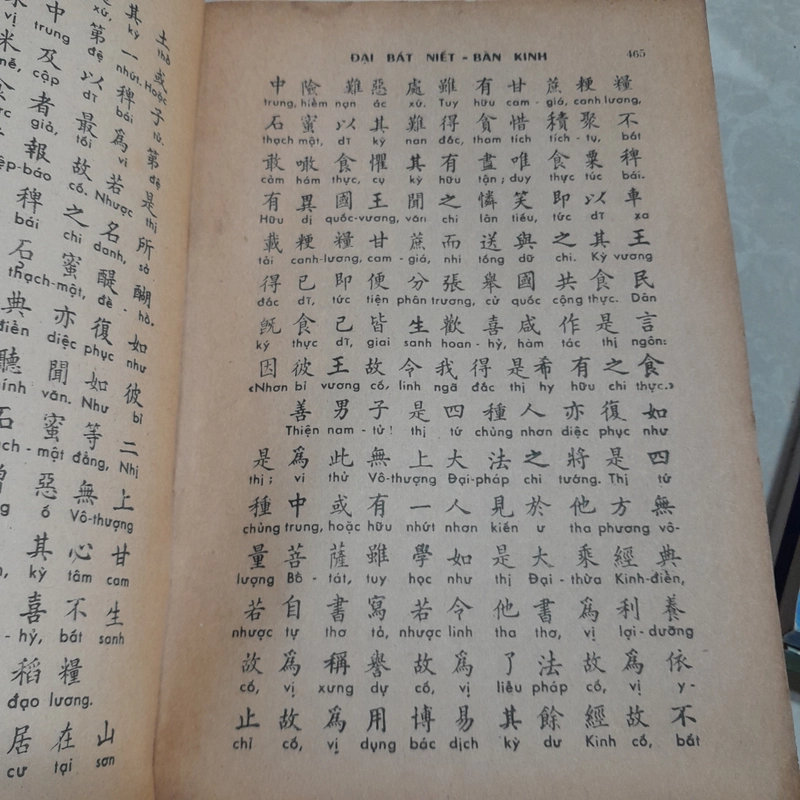 其 土
kỳ thổ
中 第 一 或
trung đệ nhứt. Hoặc
米 及 以 稗 子
cập dĩ bái tử.
食 者 最 爲 第
giả, tối vi đệ
報 故 若 是
ệp-báo cố. Nhược thị
稗 之 名 所
bái chi danh, sở
石 蜜 醍 醐
thạch-mật, đề-hồ.
典 亦 復 如
điển diệc phục như
聽 聞 如 彼
thính văn. Như bỉ
石 蜜 等 二
ạch-mật đẳng, Nhị
惡 無 上
ố Vô-thượng
其 心 甘
kỳ tâm cam
喜 不 生
-hỷ, bất sanh
稻 糧
đạo lương.
居 在 山
cư tại sơn
ĐẠI BÁT NIẾT-BÀN KINH 465
中 險 難 惡 處 雖 有 甘 蔗 粳 糧
trung, hiểm nạn ác xứ. Tuy hữu cam-giá, canh lương,
石 蜜 以 其 難 得 貪 惜 積 聚 不
thạch mật, dĩ kỳ nan đắc, tham tích tích-tụ, bất
敢 噉 食 懼 其 有 盡 唯 食 粟 稗
cảm hám thực, cụ kỳ hữu tận; duy thực túc bái.
有 異 國 王 聞 之 憐 笑 即 以 車
Hữu dị quốc-vương, văn chi lân tiếu, tức dĩ xa
載 粳 糧 甘 蔗 而 送 與 之 其 王
tải canh-lương, cam-giá, nhi tống dữ chi. Kỳ vương
得 已 即 便 分 張 舉 國 共 食 民
đắc dĩ, tức tiện phân trương, cử quốc cộng thực. Dân
旣 食 已 皆 生 歡 喜 咸 作 是 言
ký thực dĩ, giai sanh hoan-hỷ, hàm tác thị ngôn:
因 彼 王 故 令 我 得 是 希 有 之 食
«Nhơn bỉ vương cố, linh ngã đắc thị hy hữu chi thực.»
善 男 子 是 四 種 人 亦 復 如
Thiện nam-tử! thị tứ chủng nhơn diệc phục như
是 爲 此 無 上 大 法 之 將 是 四
thị; vi thử Vô-thượng Đại-pháp chi tướng. Thị tứ
種 中 或 有 一 人 見 於 他 方 無
chủng trung, hoặc hữu nhứt nhơn kiến ư tha phương vô-
量 菩 薩 雖 學 如 是 大 乘 經 典
lượng Bồ-tát, tuy học như thị Đại-thừa Kinh-điển,
若 自 書 寫 若 令 他 書 爲 利 養
nhược tự thơ tả, nhược linh tha thơ, vị lợi-dưỡng
故 爲 稱 譽 故 爲 了 法 故 爲 依
cố, vị xưng dự cố, vị liễu pháp cố, vị y-
止 故 爲 用 博 易 其 餘 經 故 不
chỉ cố, vị dụng bác dịch kỳ dư Kinh cố, bất